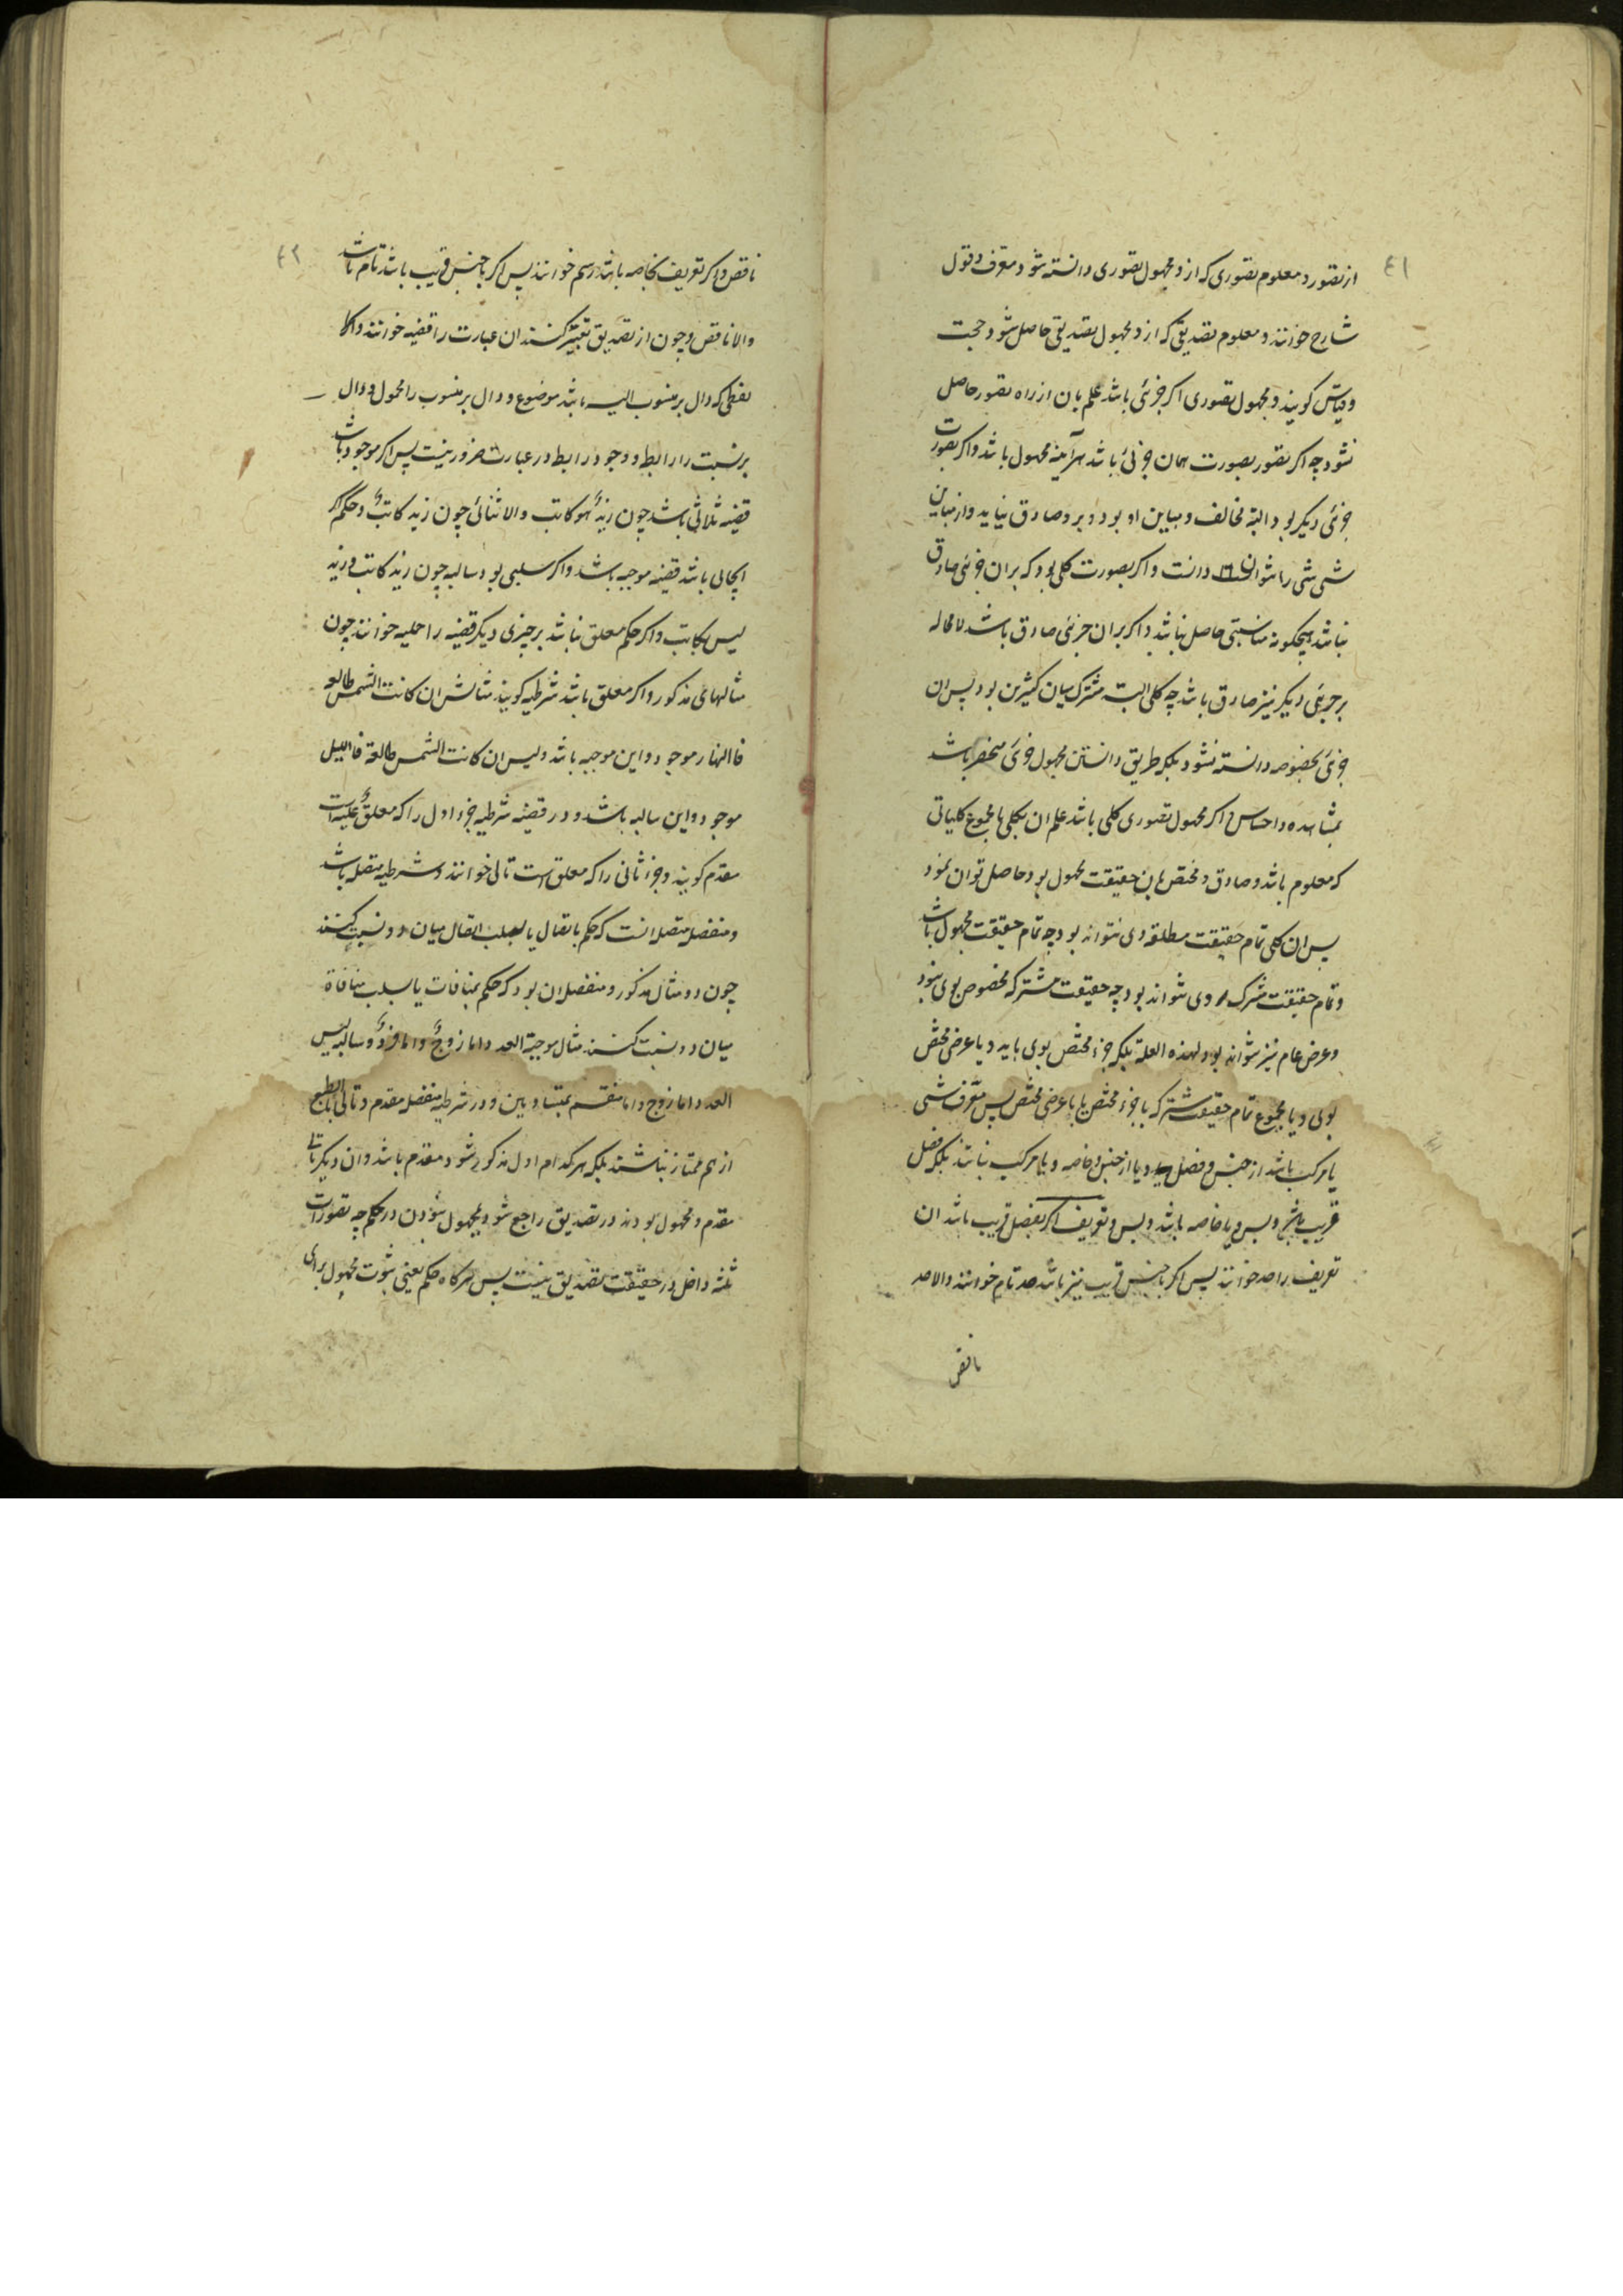 ٤١
از تصور و معلوم تصوری که ازو مجهول تصوری دانسته شود معرف و قول
شارح خوانند و معلوم تصدیقی که ازو مجهول تصدیقی حاصل شود حجت
و قیاس کویند و مجهول تصوری اکر جزئی باشد علم بان از راه تصور حاصل
نشود چه اکر تصور بصورت همان جزئی باشد هرآینه مجهول باشد و اکر بصورت
جزئی دیکر بود البته مخالف و مباین او بود و برو صادق نیاید و از مباین
شی شی را نتوان دانست و اکر بصورت کلی بود که بران جزئی صادق
نباشد هیچکونه مناسبتی حاصل نباشد و اکر بران جزئی صادق باشد لامحاله
بر جزئی دیکر نیز صادق باشد چه کلی البته مشترک میان کثیرین بود پس ان
جزئی بخصوصه دانسته نشود بلکه طریق دانستن مجهول جزئی منحصر باشد
بمشاهده و احساس و اکر مجهول تصوری کلی باشد علم ان بکلی یا مجموع کلیاتی
که معلوم باشد و صادق و مختص بان حقیقت مجهول بود حاصل توان نمود
پس ان کلی تمام حقیقت مطلقه وی نتواند بود چه تمام حقیقت مجهول باشد
و تمام حقیقت مشترک وی نتواند بود چه حقیقت مشترکه مخصوص بوی نبود
و عرض عام نیز نتواند بود لهذه العلة بلکه جزء مختص بوی باید و یا عرضی مختص
بوی و یا مجموع تمام حقیقت مشترکه با جزء مختص یا با عرضی مختص پس معرف شی
یا مرکب باشد از جنس و فصل و یا از جنس و خاصه و یا مرکب نباشد بلکه فصل
قریب باشد و بس و یا خاصه باشد و بس و تعریف اکر بفصل قریب باشد ان
تعریف را حد خوانند پس اکر با جنس قریب نیز باشد حد تام خوانند والا حد
ناقص
٤٢
ناقص و اکر تعریف بخاصه باشد رسم خوانند پس اکر با جنس قریب باشد تام باشد
والا ناقص و چون از تصدیق تعبیر کنند ان عبارت را قضیه خوانند و انکاه
لفظی که دال بر منسوب الیه باشد موضوع و دال بر منسوب را محمول و دال
بر نسبت را رابطه و وجود رابطه در عبارت ضرور نیست پس اکر موجود باشد
قضیه ثلاثی باشد چون زیدٌ هو کاتب والا ثنائی چون زید کاتبٌ و حکم اکر
ایجابی باشد قضیه موجبه باشد و اکر سلبی بود سالبه چون زید کاتب و زید
لیس بکاتب و اکر حکم معلق نباشد بر چیزی دیکر قضیه را حملیه خوانند چون
مثالهای مذکور و اکر معلق باشد شرطیه کویند مثالش ان کانت الشمس طالعه
فالنهار موجود و این موجبه باشد و لیس ان کانت الشمس طالعة فاللیل
موجود و این سالبه باشد و در قضیه شرطیه جزء اول را که معلقٌ علیه است
مقدم کویند و جزء ثانی را که معلق است تالی خوانند و شرطیه متصله باشد
و منفصله متصله انست که حکم باتصال یا بسلب اتصال میان دو نسبت کنند
چون دو مثال مذکور و منفصله ان بود که حکم بمنافات یا بسلب منافاة
میان دو نسبت کنند مثال موجبة العدد اما زوجٌ و اما فردٌ و سالبه لیس
العدد اما زوج و اما منقسم بمتساویین و در شرطیه منفصله مقدم و تالی بالطبع
از هم ممتاز نباشند بلکه هرکدام اول مذکور شود مقدم باشد و ان دیکر تالی
مقدم و مجهول بودن در تصدیق راجع شود بمجهول بودن در حکم چه تصورات
ثلثه داخل در حقیقت تصدیق نیست پس هرکاه حکم یعنی ثبوت محمول برای